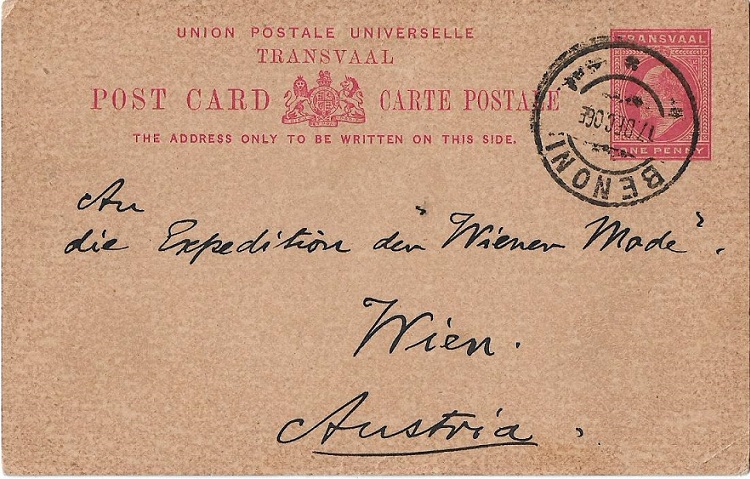 UNION POSTALE UNIVERSELLE
TRANSVAAL
POST CARD CARTE POSTALE
THE ADDRESS ONLY TO BE WRITTEN ON THIS SIDE.
TRANSVAAL
ONE PENNY
BENONI
17 DEC 06
An
die Expedition der "Wiener Mode".
Wien.
Austria.